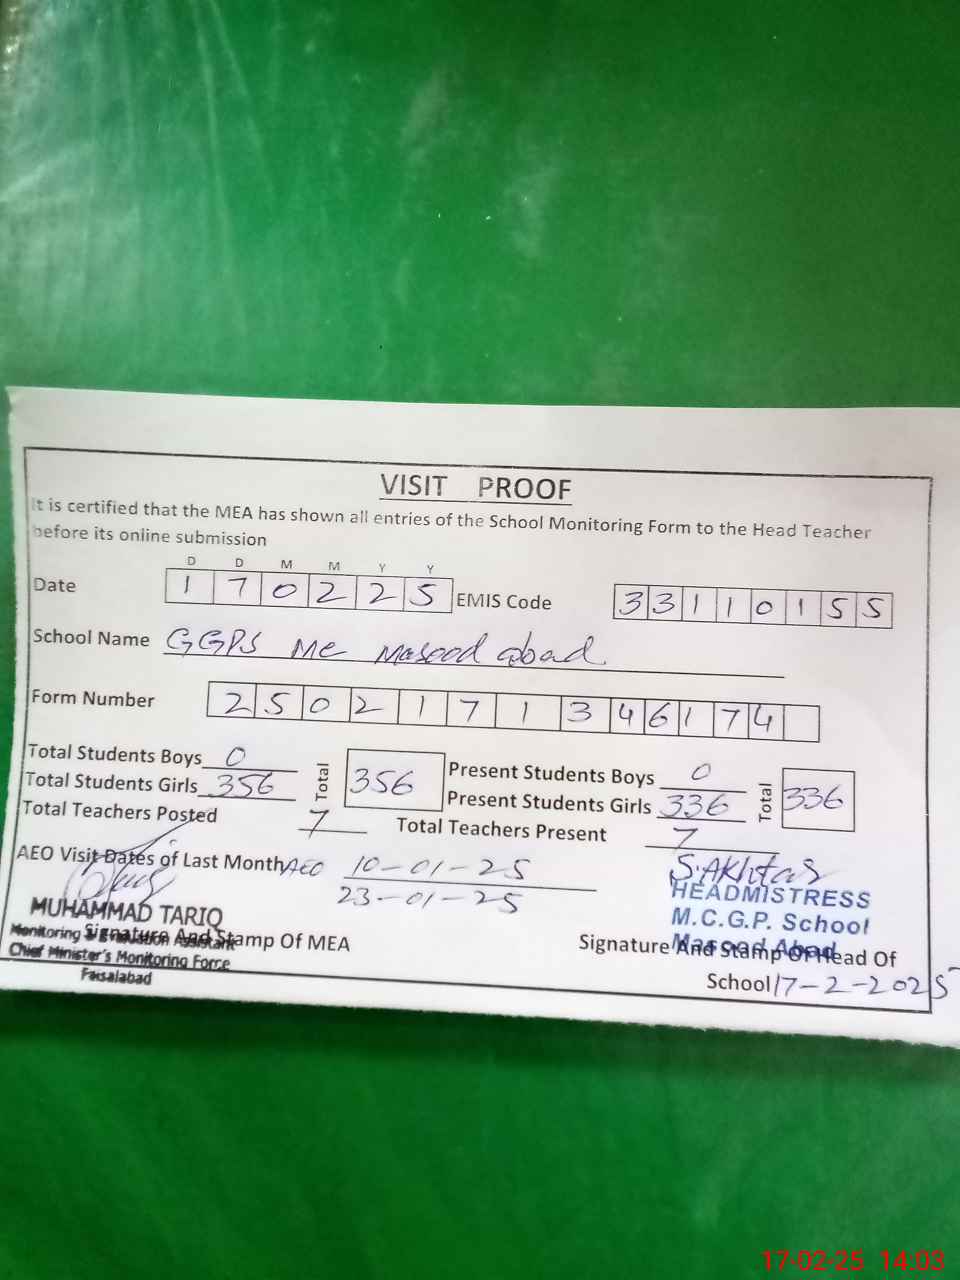 VISIT PROOF
It is certified that the MEA has shown all entries of the School Monitoring Form to the Head Teacher
before its online submission
D D M M Y Y
Date 1 7 0 2 2 5 EMIS Code 3 3 1 1 0 1 5 5
School Name GGPS MC Masood abad
Form Number 2 5 0 2 1 7 1 3 4 6 1 7 4
Total Students Boys 0 Total 356 Present Students Boys 0 Total 336
Total Students Girls 356 Present Students Girls 336
Total Teachers Posted 7 Total Teachers Present 7
AEO Visit Dates of Last Month AEO 10-01-25
23-01-25
S.Akhtar
HEADMISTRESS
M.C.G.P. School
Masood Abad
MUHAMMAD TARIQ
Monitoring & Evaluation Assistant
Chief Minister's Monitoring Force
Faisalabad
Signature And Stamp Of MEA
Signature And Stamp Of Head Of
School 17-2-2025
17-02-25 14:03